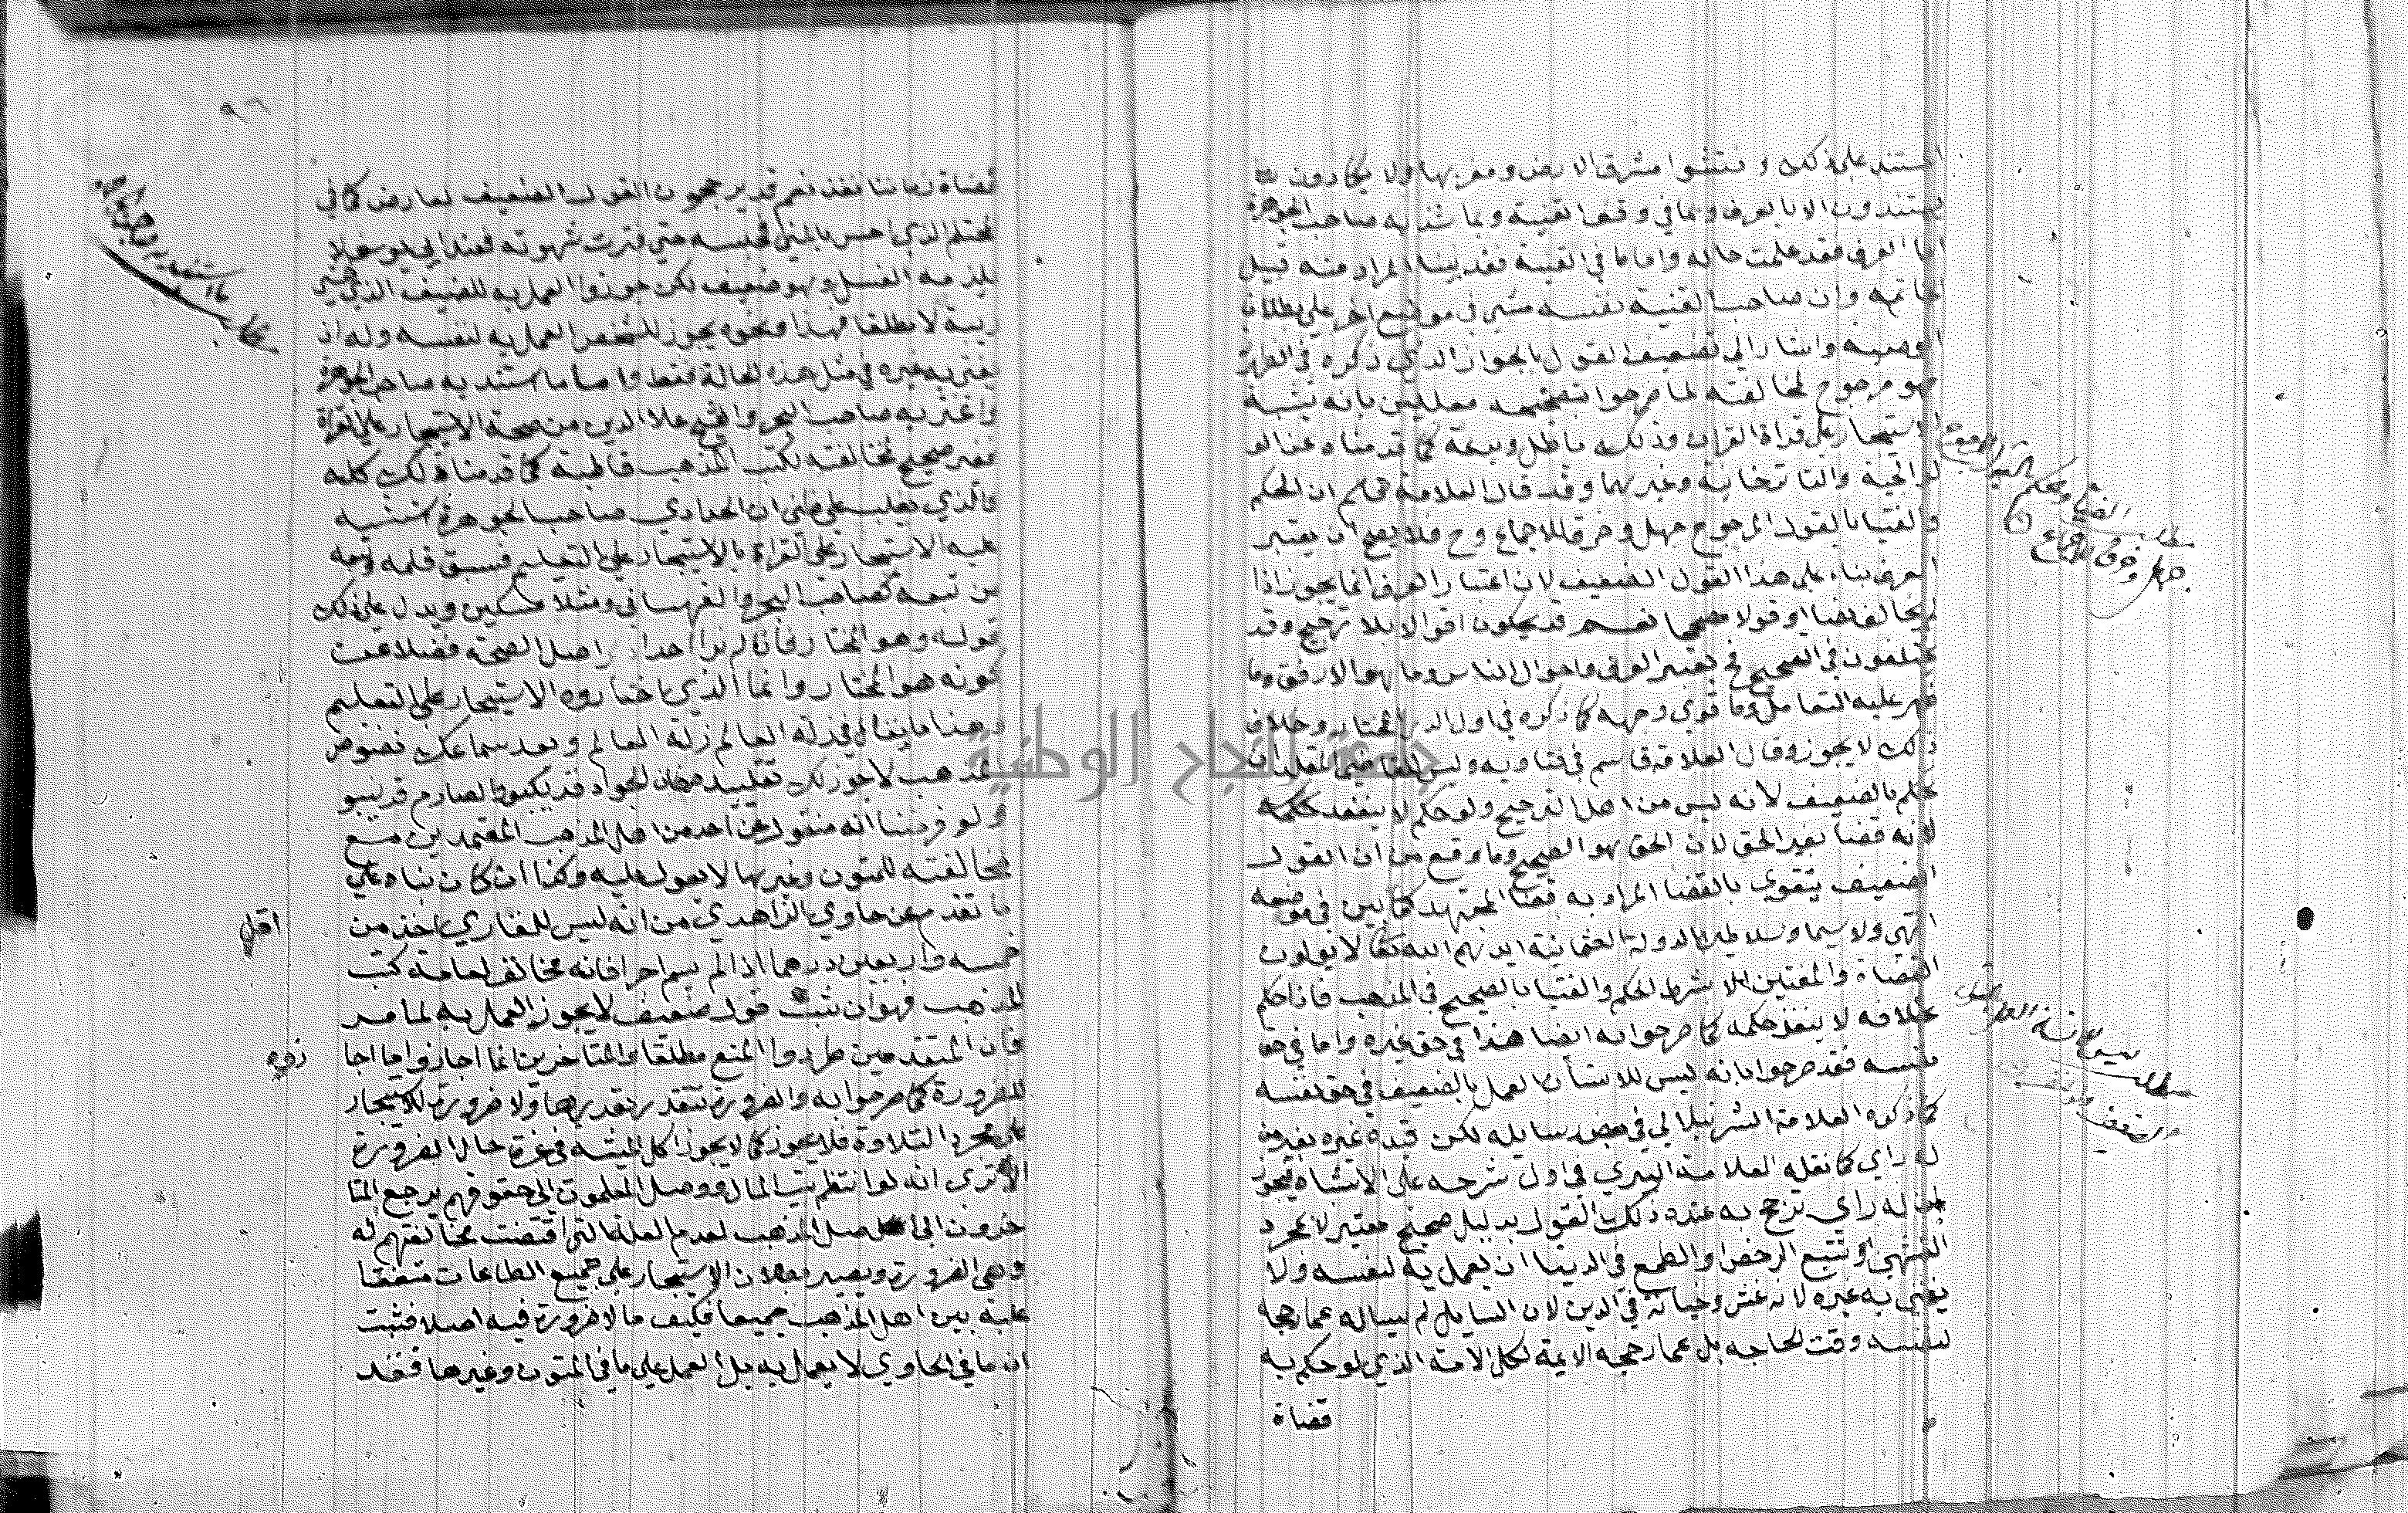 المستند على ذلك وفتشوا مشرق الارض ومغربها ولا يكادون
يستندون الا بالعرف وبما في وقف القنية وبما شذ به صاحب الجوهرة
اما العرف فقد علمت حاله واما ما في القنية فقد بينا المراد منه قبيل
الخاتمة وان صاحب القنية نفسه مشى في موضع اخر على بطلان
الوصية واشار الى تضعيف القول بالجواز الذي ذكره في
فهو مرجوح لمخالفته لما صرحوا بتصحيحه معللين بانه يشبه
الاستيجار على قراة القران وذلك باطل وبدعة كما قدمناه عن
الولوالجية والتاترخانية وغيرهما وقد قال العلامة قاسم ان الحكم
والفتيا بالقول المرجوح جهل وخرق للاجماع وح فلا يصح ان يعتبر
العرف بناء على هذا القول الضعيف لان اعتبار العرف انما يجوز اذا
لم يخالف نصا او قولا مصححا نعم قد يحكون اقوالا بلا ترجيح وقد
يختلفون في الصحيح فح يعتبر العرف واحوال الناس وما هو الارفق وما
ظهر عليه التعامل وما قوي وجهه كما ذكره في اول الدر المختار وخلاف
ذلك لا يجوز وقال العلامة قاسم في فتاويه وليس للقاضي المقلد ان
يحكم بالضعيف لانه ليس من اهل الترجيح ولو حكم لا ينفذ حكمه
لانه قضا بغير الحق لان الحق هو الصحيح وما وقع من ان القول
الضعيف يتقوى بالقضا المراد به قضا المجتهد كما بين في موضعه
انتهى ولا سيما وسلاطين الدولة العثمانية ايدهم الله تعا لا يولون
القضاة والمفتين الا بشرط الحكم والفتيا بالصحيح في المذهب فاذا حكم
بخلافه لا ينفذ حكمه كما صرحوا به ايضا هذا في حق غيره واما في حق
نفسه فقد صرحوا بانه ليس للانسان العمل بالضعيف في حق نفسه
كما ذكره العلامة الشرنبلالي في بعض رسايله لكن قيده غيره بغير من
له راي كما نقله العلامة البيري في اول شرحه على الاشباه فيجوز
لمن له راي ترجح به عنده ذلك القول بدليل صحيح معتبر لا بمجرد
التشهي او تتبع الرخص او الطمع في الدنيا ان يعمل به لنفسه ولا
يفتي به غيره لانه غش وخيانة في الدين لان السايل لم يساله عما رجحه
لنفسه وقت الحاجه بل عما رجحه الايمة لكل الامة الذي لو حكم به
قضاة
مطلب الفتيا والحكم بالقول المرجوح
جهل وخرق للاجماع
مطلب ليس للانسان العمل
بالضعيف
٩٦
قضاة زماننا نفذ نعم قد يرجحون القول الضعيف لعارض كما في
محتلم الذي احس بالمني فحبسه حتى فترت شهوته فعند ابي يوسف لا
يلزمه الغسل وهو ضعيف لكن جوزوا العمل به للضيف الذي خشي
ريبة لا مطلقا فهذا ونحوه يجوز للشخص العمل به لنفسه وله ان
يفتي به غيره في مثل هذه الحالة فقط واما ما استند به صاحب الجوهرة
واغتر به صاحب البحر والشيخ علا الدين من صحة الاستيجار على القراة
فغير صحيح لمخالفته لكتب المذهب قاطبة كما قدمنا ذلك كله
والذي يغلب على ظني ان الحدادي صاحب الجوهرة اشتبه
عليه الاستيجار على القراة بالاستيجار على التعليم فسبق قلمه وتبعه
من تبعه كصاحب البحر والقهستاني ومنلا مسكين ويدل على ذلك
قوله وهو المختار فانا لم نر احدا اصل الصحة فضلا عن
كونه هو المختار وانما الذي اختاروه الاستيجار على التعليم
وهذا ما يقال في زلة العالم زلة العالم وبعد سماعك نصوص
المذهب لا يجوز لك تقليد فان الجواد قد يكبو والصارم قد ينبو
ولو فرضنا انه منقول عن احد من اهل المذهب المعتمدين مع
مخالفته للمتون وغيرها لا يعول عليه وكذا ان كان بناه على
ما تقدم عن حاوي الزاهدي من انه ليس للقاري اخذ من
اقل
خمسه واربعين درهما اذا لم يسم اجرا فانه مخالف لعامة كتب
المذهب فهو ان ثبت قول ضعيف لا يجوز العمل به لما مر
فان المتقدمين طردوا المنع مطلقا والمتاخرين انما اجازوا ما اجا
زوه
للضرورة كما صرحوا به والضرورة تتقدر بقدرها ولا ضرورة للاستيجار
على مجرد التلاوة فلا يجوز كما لا يجوز اكل الميتة في غير حال الضرورة
الا ترى انه لو انتظم بيت المال ووصل المعلمون الى حقوقهم يرجع المتا
خرون الى اصل المذهب لعدم العلة التي اقتضت مخالفتهم له
وهي الضرورة ويصير بطلان الاستيجار على جميع الطاعات متفقا
عليه بين اهل المذهب جميعا فكيف ما لا ضرورة فيه اصلا فثبت
ان ما في الحاوي لا يعمل به بل العمل على ما في المتون وغيرها فقد
مطلب
ما استند به صاحب الجوهرة
جامعة النجاح الوطنية